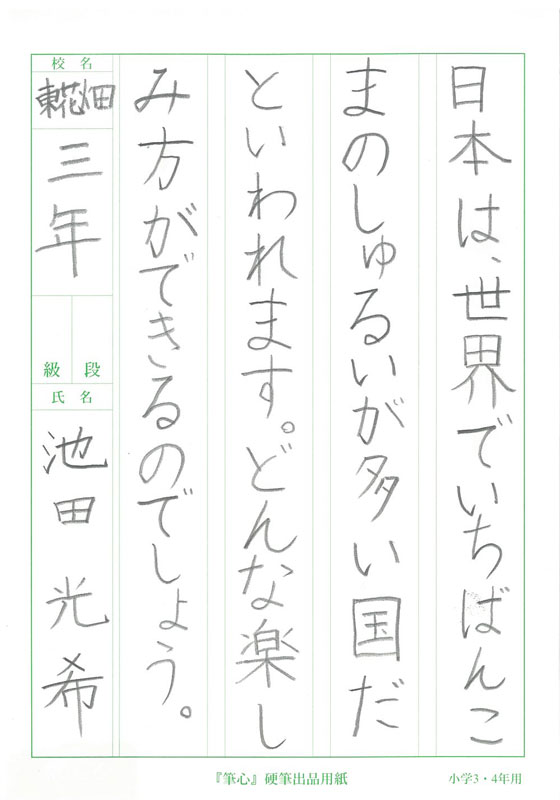 日本は、世界でいちばんこ
まのしゅるいが多い国だ
といわれます。どんな楽し
み方ができるのでしょう。
校名
東花畑
三年
段
級
氏名
池田光希
『筆心』硬筆出品用紙
小学3・4年用